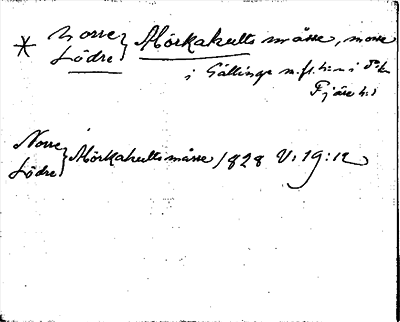 * Norre
Södre } Mörkakults mässe, mosse
i Gällinge m. fl. h:n i
Fjäre h:d
Norre
Södre } Mörkakults mässe 1828 V. 19:12